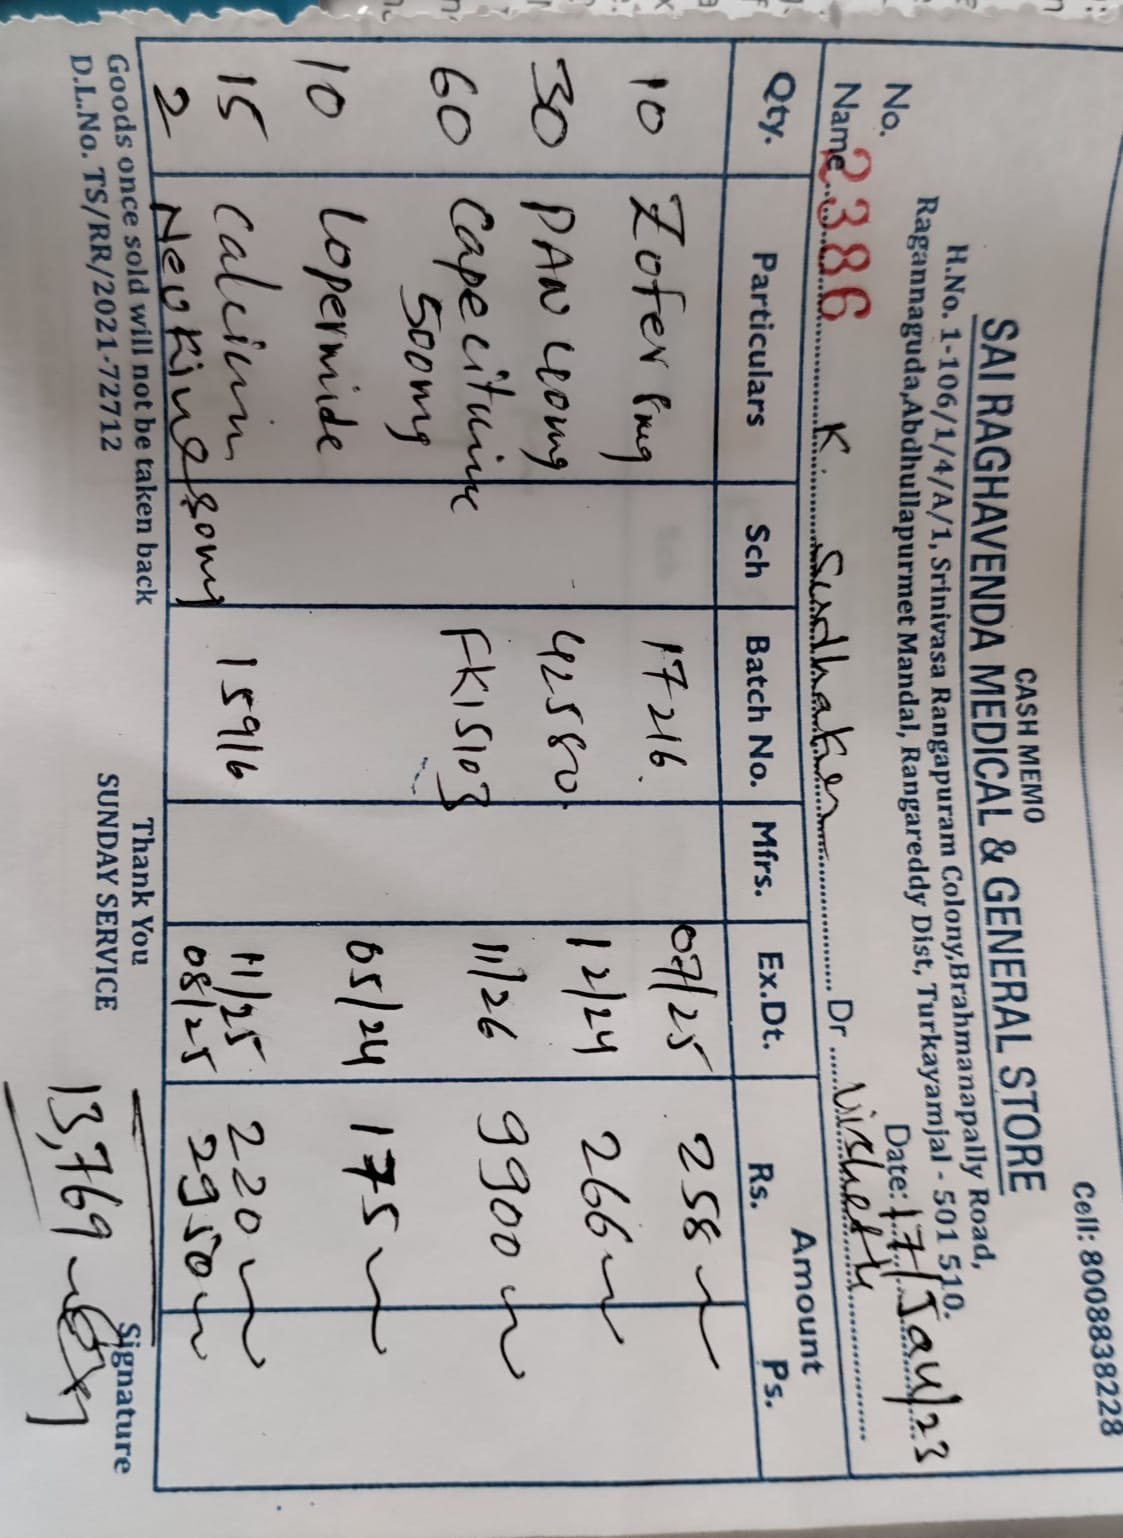 CASH MEMO
Cell: 8008838228
SAI RAGHAVENDA MEDICAL & GENERAL STORE
H.No. 1-106/1/4/A/1, Srinivasa Rangapuram Colony,Brahmanapally Road,
Ragannaguda,Abdhullapurmet Mandal, Rangareddy Dist, Turkayamjal - 501 510.
No. 2386 Date: 17/Jan/23
Name K. Sudhaker Dr
Qty. Particulars Sch Batch No. Mfrs. Ex.Dt. Amount
Rs. Ps.
10 Zofer 8mg 17216 07/25 258
30 PAN 40mg 42580 12/24 266
60 Capecitine FK15103 11/26 9900
500mg
10 Lopermide 05/24 175
15 Calcium 15916 11/25 220
2 NeuKine 08/25 2950
Goods once sold will not be taken back Thank You Signature
D.L.No. TS/RR/2021-72712 SUNDAY SERVICE
13,769